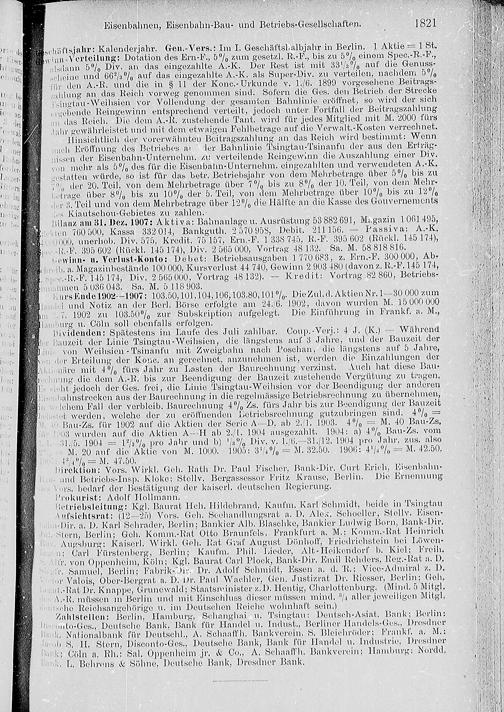 Eisenbahnen, Eisenbahn-Bau- und Betriebs-Gesellschaften. 1821
Kalenderjahr. Gen.-Vers.: Im I. Geschäftshalbjahr in Berlin. 1 Aktie = 1 St.
Dotation des Ern.-F., 5% zum gesetzl. R.-F., bis zu 5% einem Spec.-R.-F.,
5% Div. an das eingezahlte A.-K. Der Rest ist mit 33⅓% auf die Genuss-
und 66⅔% auf das eingezahlte A.-K. als Super-Div. zu verteilen, nachdem 5%
für den A.-R. und die in § 11 der Konc.-Urkunde v. 1./6. 1899 vorgesehene Beitrags-
zahlung an das Reich vorweg genommen sind. Sofern die Ges. den Betrieb der Strecke
Tsingtau-Weihsien vor Vollendung der gesamten Bahnlinie eröffnet, so wird der sich
ergebende Reingewinn entsprechend verteilt, jedoch unter Fortfall der Beitragszahlung
an das Reich. Die dem A.-R. zustehende Tant. wird für jedes Mitglied mit M. 2000 fürs
Jahr gewährleistet und mit dem etwaigen Fehlbetrage auf die Verwalt.-Kosten verrechnet.
Hinsichtlich der vorerwähnten Beitragszahlung an das Reich wird bestimmt: Wenn
nach Eröffnung des Betriebes der Bahnlinie Tsingtau-Tsinanfu der aus den Erträg-
nissen der Eisenbahn-Unternehm. zu verteilende Reingewinn die Auszahlung einer Div.
von mehr als 5% des für die Eisenbahn-Unternehm. eingezahlten und verwendeten A.-K.
gestatten würde, so ist für das betr. Betriebsjahr von dem Mehrbetrage über 5% bis zu
der 20. Teil, von dem Mehrbetrage über 7% bis zu 8% der 10. Teil, von dem Mehr-
betrage über 8% bis zu 10% der 5. Teil, von dem Mehrbetrage über 10% bis zu 12%
der 3. Teil und von dem Mehrbetrage über 12% die Hälfte an die Kasse des Gouvernements
des Kiautschou-Gebietes zu zahlen.
Bilanz am 31. Dez. 1907: Aktiva: Bahnanlage u. Ausrüstung 53 882 691, Magazin 1 061 495,
700 500, Kassa 332 014, Bankguth. 2 570 958, Debit. 211 156. — Passiva: A.-K.
unerhob. Div. 575, Kredit. 75 157, Ern.-F. 1 338 745, R.-F. 395 602 (Rückl. 145 174),
R.-F. 395 602 (Rückl. 145 174), Div. 2 565 000, Vortrag 48 132. Sa. M. 58 818 816.
Gewinn- u. Verlust-Konto: Debet: Betriebsausgaben 1 770 683, z. Ern.-F. 300 000, Ab-
a. Magazinbestände 100 000, Kursverlust 44 740, Gewinn 2 903 480 (davon z. R.-F. 145 174,
R.-F. 145 174, Div. 2 565 000, Vortrag 48 132). — Kredit: Vortrag 82 860, Betriebs-
5 036 043. Sa. M. 5 118 903.
Kurs Ende 1902—1907: 103.50, 101, 104, 106, 103.80, 101%. Die Zul. d. Aktien Nr. 1—30 000 zum
und Notiz an der Berl. Börse erfolgte am 24./6. 1902, davon wurden M. 15 000 000
1902 zu 103.50% zur Subskription aufgelegt. Die Einführung in Frankf. a. M.,
Hamburg u. Cöln soll ebenfalls erfolgen.
Dividenden: Spätestens im Laufe des Juli zahlbar. Coup.-Verj.: 4 J. (K.) — Während
Bauzeit der Linie Tsingtau-Weihsien, die längstens auf 3 Jahre, und der Bauzeit der
von Weihsien-Tsinanfu mit Zweigbahn nach Poschan, die längstens auf 5 Jahre,
der Erteilung der Konz. an gerechnet, anzunehmen ist, werden die Einzahlungen der
mit 4% fürs Jahr zu Lasten der Baurechnung verzinst. Auch hat diese Bau-
rechnung die dem A.-R. bis zur Beendigung der Bauzeit zustehende Vergütung zu tragen.
jedoch der Ges. frei, die Linie Tsingtau-Weihsien vor der Beendigung der anderen
Bahnstrecken aus der Baurechnung in die regelmässige Betriebsrechnung zu übernehmen,
welchem Fall der verbleib. Baurechnung 4% Zs. fürs Jahr bis zur Beendigung der Bauzeit
werden, welche der zu eröffnenden Betriebsrechnung gutzubringen sind. 4% =
Bau-Zs. für 1902 auf die Aktien der Serie A—D, ab 2./1. 1903. 4% = M. 40 Bau-Zs,
wurden auf die Aktien A—H ab 2./1. 1904 ausgezahlt. 1904: a) 4% Bau-Zs. vom
31./5. 1904 = 1⅔% pro Jahr und b) Div. v. 1./6.—31./12. 1904 pro Jahr, zus. also
M. 20 auf die Aktie von M. 1000. 1905: 3¼% = M. 32.50. 1906: 4¼% = M. 42.50.
4¾% = M. 47.50.
Direktion: Vors. Wirkl. Geh. Rath Dr. Paul Fischer, Bank-Dir. Curt Erich, Eisenbahn-
und Betriebs-Insp. Kloke; Stellv. Bergassessor Fritz Krause, Berlin. Die Ernennung
Vors. bedarf der Bestätigung der kaiserl. deutschen Regierung.
Prokurist: Adolf Hollmann.
Betriebsleitung: Kgl. Baurat Hch. Hildebrand, Kaufm. Karl Schmidt, beide in Tsingtau
Aufsichtsrat: (12—25) Vors. Geh. Seehandlungsrat a. D. Alex. Schoeller, Stellv. Eisen-
Dir. a. D. Karl Schrader, Berlin; Bankier Alb. Blaschke, Bankier Ludwig Born, Bank-Dir.
Stern, Berlin; Geh. Komm.-Rat Otto Braunfels, Frankfurt a. M.; Komm.-Rat Heinrich
Augsburg; Kaiserl. Wirkl. Geh. Rat Graf August Dönhoff, Friedrichstein bei Löwen-
Carl Fürstenberg, Berlin; Kaufm. Phil. Lieder, Alt-Heikendorf b. Kiel; Freih.
von Oppenheim, Köln; Kgl. Baurat Carl Plock, Bank-Dir. Emil Rehders, Reg.-Rat a. D.
Samuel, Berlin; Fabrik-Dir. Dr. Adolf Schmidt, Essen a. d. R.; Vice-Admiral z. D.
Valois, Ober-Bergrat a. D. Dr. Paul Wachler, Gen. Justizrat Dr. Riesser, Berlin; Geh.
Rat Dr. Knappe, Grunewald; Staatsminister z. D. Hentig, Charlottenburg. (Mind. 5 Mitgl.
A.-R. müssen in Berlin und mit Einschluss dieser müssen mind. ⅔ aller jeweiligen Mitgl.
Reichsangehörige u. im Deutschen Reiche wohnhaft sein.)
Zahlstellen: Berlin, Hamburg, Schanghai u. Tsingtau: Deutsch-Asiat. Bank; Berlin:
Disconto-Ges., Deutsche Bank, Bank für Handel u. Indust., Berliner Handels-Ges., Dresdner
Bank, Nationalbank für Deutschl., A. Schaaffh. Bankverein, S. Bleichröder; Frankf. a. M.:
S. H. Stern, Disconto-Ges., Deutsche Bank, Bank für Handel u. Industrie, Dresdner
Bank; Cöln a. Rh.: Sal. Oppenheim jr. & Co., A. Schaaffh. Bankverein; Hamburg: Nordd.
Bank, L. Behrens & Söhne, Deutsche Bank, Dresdner Bank.